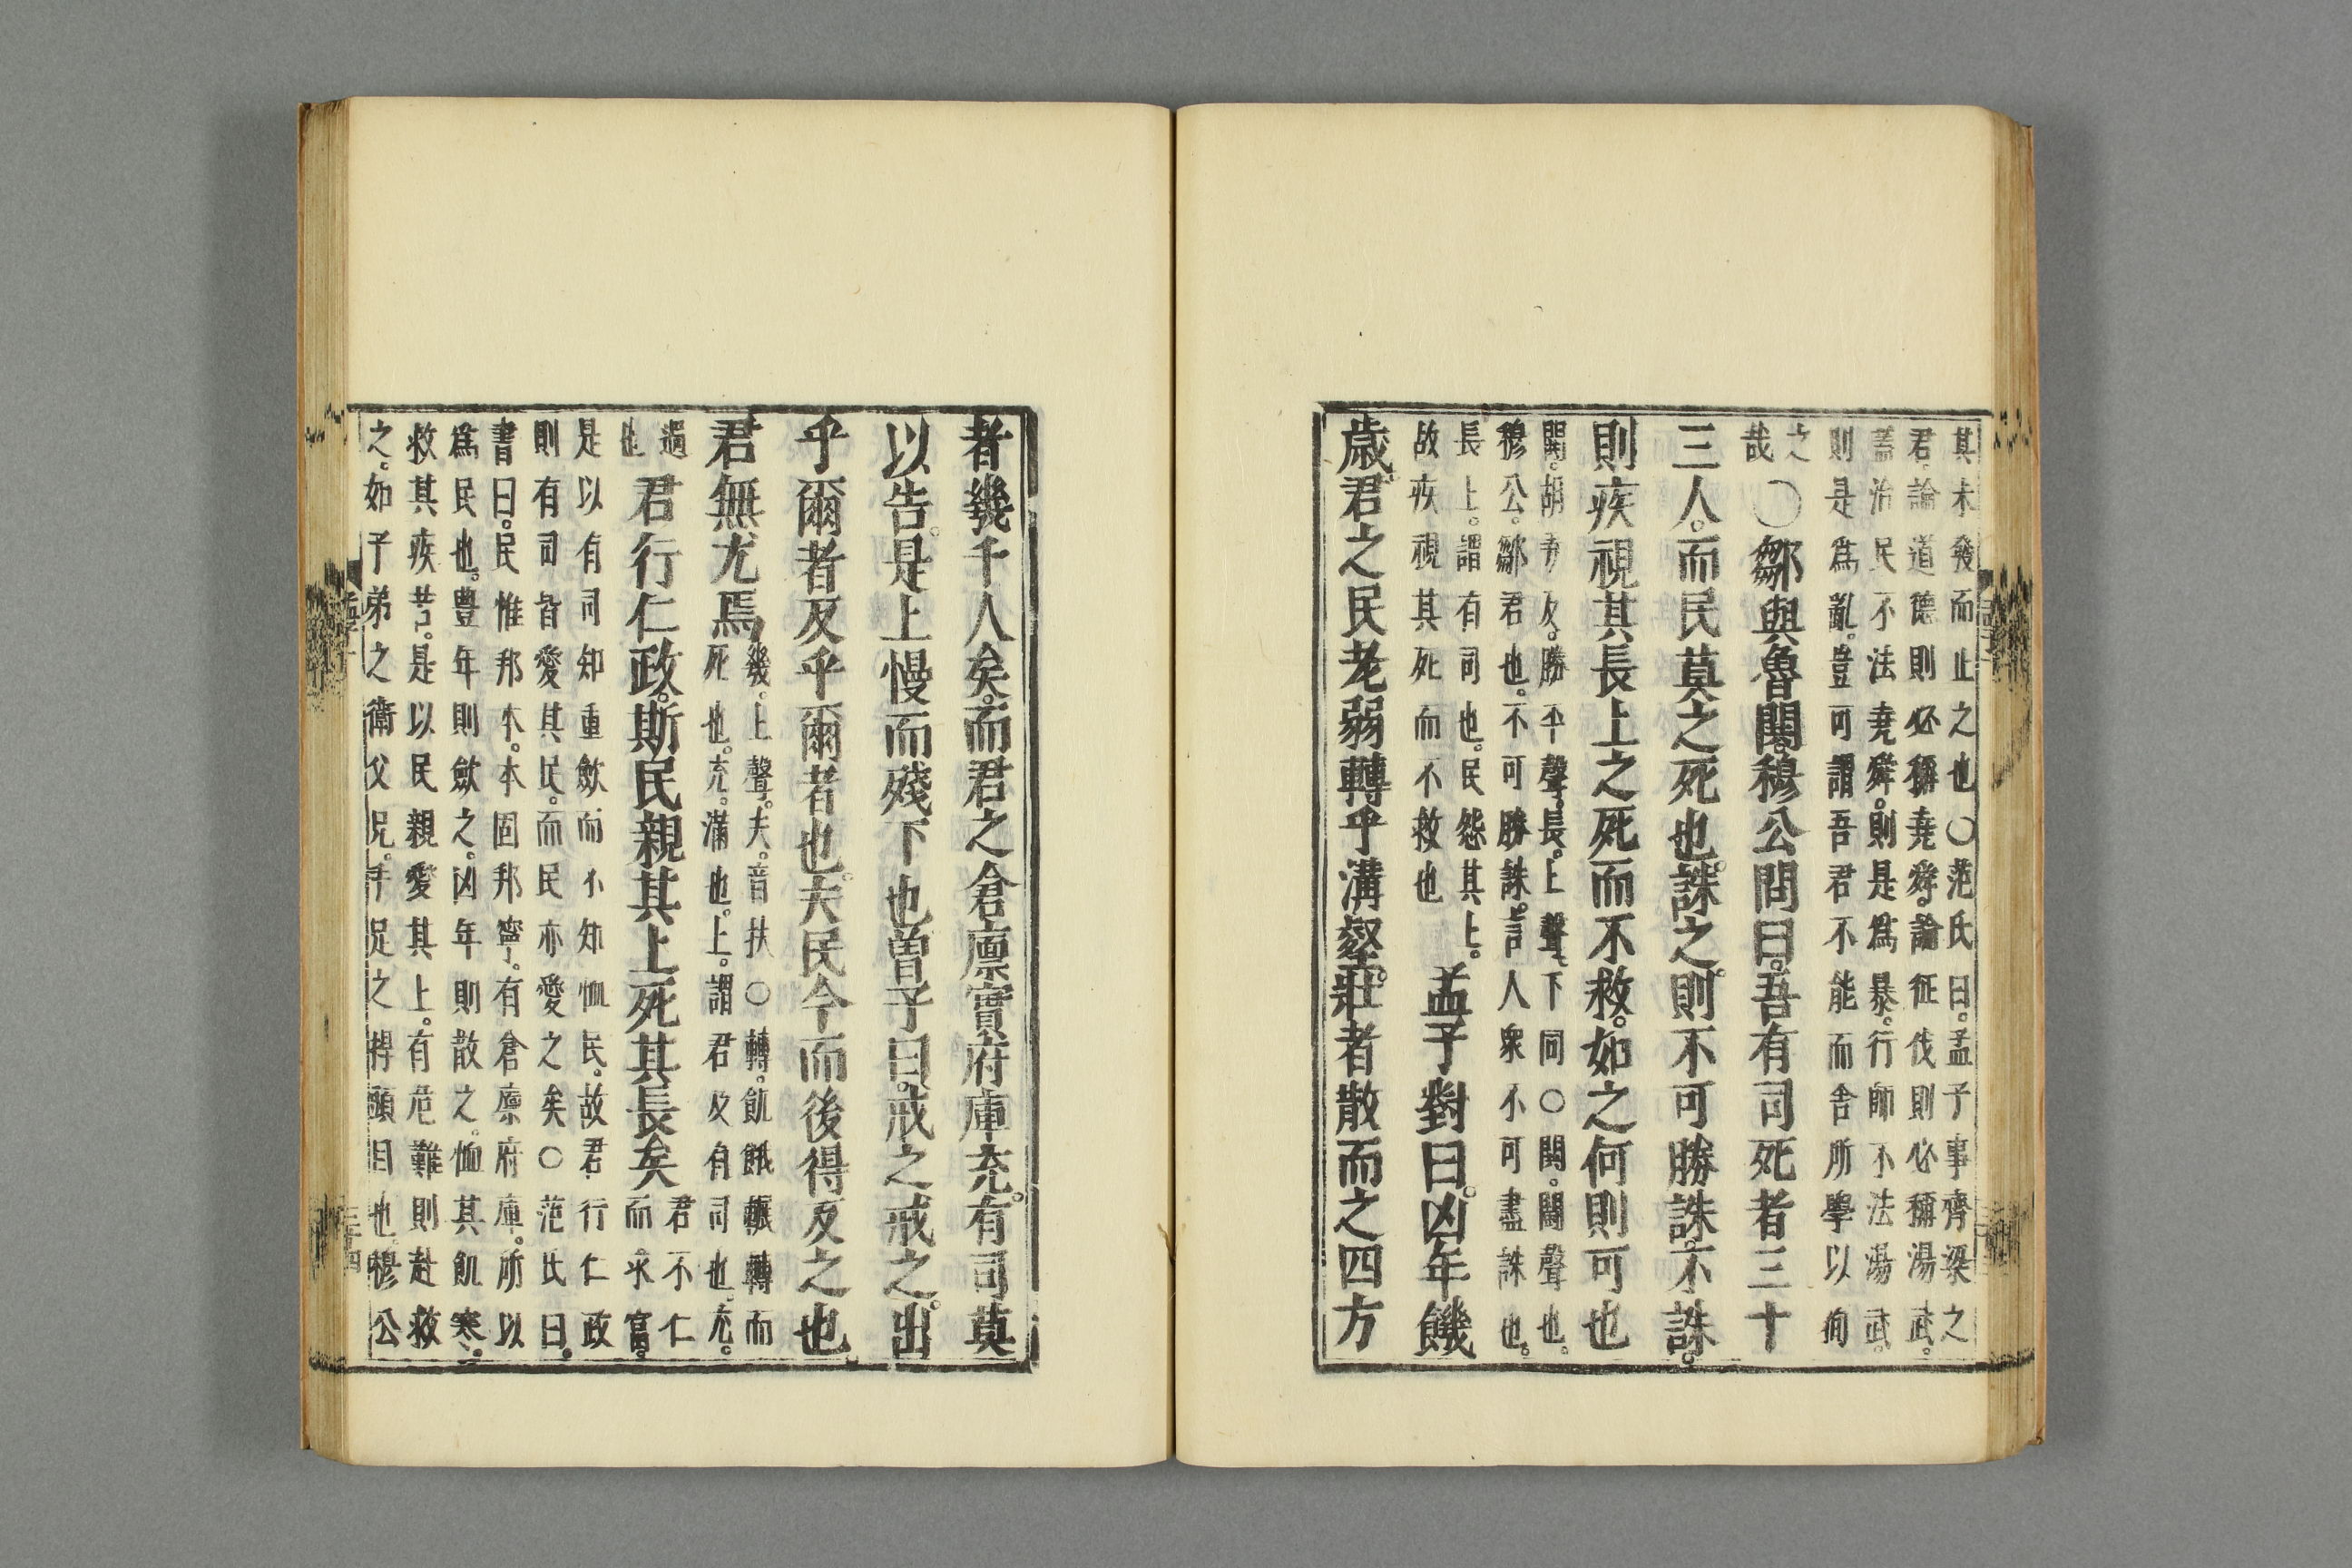 其未發而止之也○范氏曰。孟子事齊梁之
君。論道德則必稱堯舜。論征伐則必稱湯武。
蓋治民不法堯舜。則是爲暴。行師不法湯武。
則是爲亂。豈可謂吾君不能而舍所學以徇
之
哉
○鄒與魯鬨。穆公問曰。吾有司死者三十
三人。而民莫之死也。誅之。則不可勝誅。不誅。
則疾視其長上之死而不救。如之何則可也
鬨。胡弄反。勝平聲。長。上聲。下同○鬨。鬬聲也。
穆公。鄒君也。不可勝誅。言人衆不可盡誅也。
長上。謂有司也。民怨其上。
故疾視其死而不救也
孟子對曰。凶年饑
歲。君之民老弱轉乎溝壑。壯者散而之四方
者幾千人矣。而君之倉廩實府庫充。有司莫
以告。是上慢而殘下也。曾子曰。戒之戒之。出
乎爾者反乎爾者也。夫民今而後得反之也。
君無尤焉
幾。上聲。夫。音扶○轉。飢餓輾轉而
死也。充。滿也。上。謂君及有司也。尤。
過
也
君行仁政。斯民親其上死其長矣
君不仁
而求富。
是以有司知重歛而不知恤民。故君行仁政
則有司皆愛其民。而民亦愛之矣○范氏曰。
書曰。民惟邦本。本固邦寧。有倉廩府庫。所以
爲民也。豐年則歛之。凶年則散之。恤其飢寒。
救其疾苦。是以民親愛其上。有危難則赴救
之。如子弟之衞父兄。手足之捍頭目也。穆公